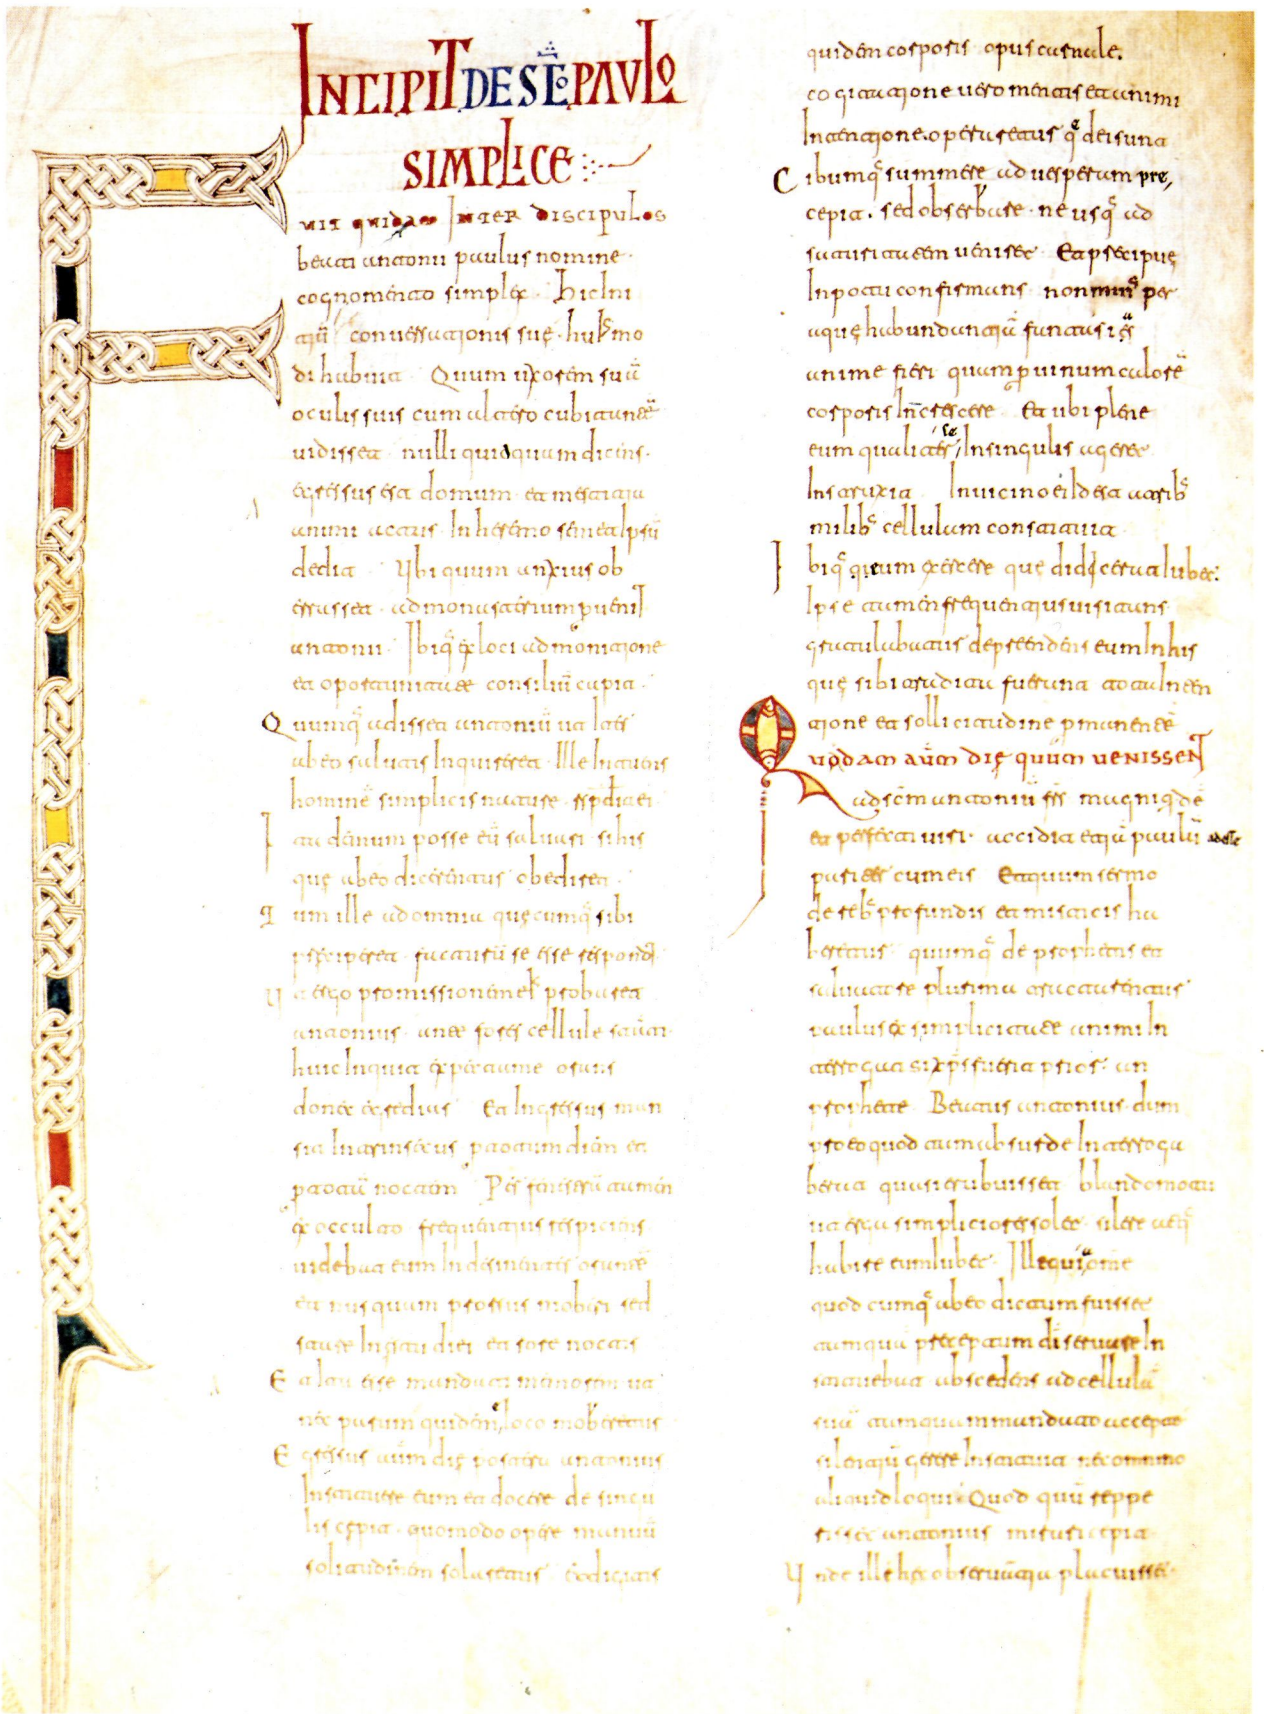 INCIPIT DE SC̅O PAVLO
SIMPLICE
FUIT quidam INTER DISCIPULOS
beati antonii paulus nomine·
cognomento simplex· Hic Ini
tiū conuersationis suę· huius̅mo
di habuit· Quum uxorem suā
oculis suis cum altero cubitantē
uidisset· nulli quidquam dicens·
egressus est domum· et mestitia
animi actus· In heremo semetIpsū
dedit· Ubi quum anxius ob
errasset· ad monasterium perueniT
antonii· Ibiq; ex loci admonitione
et oportunitate consiliū capit·
Quumq; adisset antoniū ut Iter
ab eo salutis Inquireret· Ille Intuens
hominē simplicis nature· respdit ei·
Ita demum posse eū saluari· si his
quę ab eo dicerentur obediret·
Tum ille ad omnia quęcumq; sibi
preciperet· facturū se esse respondit·
Ut ergo promissionem eius probaret
antonius· ante fores cellule stanti·
huic Inquit expecta me orans
donec egrediar· Et Ingressus man
sit Intrinsecus per totum diem et
per totā noctem· Per fenestrā tamen
ex occulto frequentius respiciens·
uidebat eum Indesinenter orantē
et nusquam prorsus moueri sed
stare In estu diei et rore noctis
Et ita esse mandati memorem ut
nec parum quidem e loco moueretur
Egressus aūm die postera antonius
Instituere eum et docere de singu
lis cepit· quomodo opere manuū
solitudinem solaretur· et digitis
quidem corporis opus carnale·
cogitatione uero mentis et animi
Intentione operaretur q̄ dei sunt
Cibumq; summere ad uesperam pre
cepit· sed obserbare· ne usq; ad
saturitatem ueniret· Et precipuę
In potu confirmans· non minus per
aquę habundantiā fantasias
anime fieri quam per uinum calorē
corporis Increscere· Et ubi plene
eum qualiter se Insingulis ageret
Instruxit· In uicino ei Id est a tribus
milibus cellulam constituit·
Ibiq; eum exercere que didicerat Iubet:
Ipse tamen frequentius uisitans·
gratulabatur deprendens eum In his
quę sibi tradita fuerunt tota Inten
tione et sollicitudine permanentē
Quodam aūm dię quum uenisseNT
ad scm antoniū frs magni q̄de
et perfecti uiri· accidit etiā paulū adesse
pariter cum eis Etquum sermo
de rebus profundis et misticis ha
beretur· quumq; de prophetis et
saluatore plurima tractarentur
paulus ex simplicitate animi In
terrogat si xps̄ fuerit prior· an
prophete· Beatus antonius· dum
pro eo quod tam absurde Interroga
berat quasi erubuisset· blando motu
ut erga simpliciores solet· silere atq;
habire eum Iubet· Ille qui a omne
quodcumq; ab eo dictum fuisset
tamquam preceptum di seruare In
statuebat· abscedens ad cellulā
suā tamquam mandato accepto
silentiū gerere Instituit· nec omnino
aliquid loqui· Quod quū reppe
risset antonius mirari cepit·
Unde ille hec obseruantia placuisset·